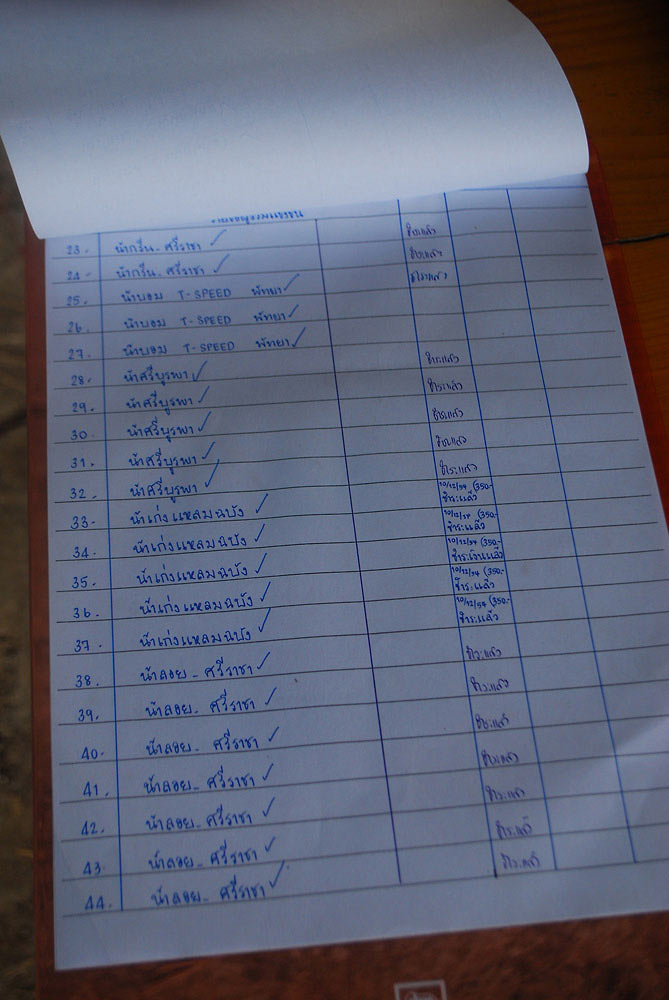 23. น้ากรีน - ศรีราชา ✓ ชำระแล้ว
24. น้ากรีน - ศรีราชา ✓ ชำระแล้ว
25. น้าบอม T-SPEED พัทยา ✓ ชำระแล้ว
26. น้าบอม T-SPEED พัทยา ✓
27. น้าบอม T-SPEED พัทยา ✓
28. น้าศรีบูรพา ✓ ชำระแล้ว
29. น้าศรีบูรพา ✓ ชำระแล้ว
30. น้าศรีบูรพา ✓ ชำระแล้ว
31. น้าศรีบูรพา ✓ ชำระแล้ว
32. น้าศรีบูรพา ✓ ชำระแล้ว
33. น้าเก่งแหลมฉบัง ✓ 10/12/54 (350.- ชำระแล้ว
34. น้าเก่งแหลมฉบัง ✓ 10/12/54 (350.- ชำระแล้ว
35. น้าเก่งแหลมฉบัง ✓ 10/12/54 (350.- ชำระเงินแล้ว
36. น้าเก่งแหลมฉบัง ✓ 10/12/54 (350.- ชำระแล้ว
37. น้าเก่งแหลมฉบัง ✓ 10/12/54 (350.- ชำระแล้ว
38. น้าลอย - ศรีราชา ✓ ชำระแล้ว
39. น้าลอย - ศรีราชา ✓ ชำระแล้ว
40. น้าลอย - ศรีราชา ✓ ชำระแล้ว
41. น้าลอย - ศรีราชา ✓ ชำระแล้ว
42. น้าลอย - ศรีราชา ✓ ชำระแล้ว
43. น้าลอย - ศรีราชา ✓ ชำระแล้ว
44. น้าลอย - ศรีราชา ✓ ชำระแล้ว